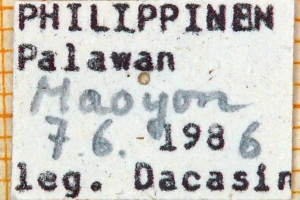 PHILIPPINEN
Palawan
Maoyon
7 6. 1986
leg. Dacasin